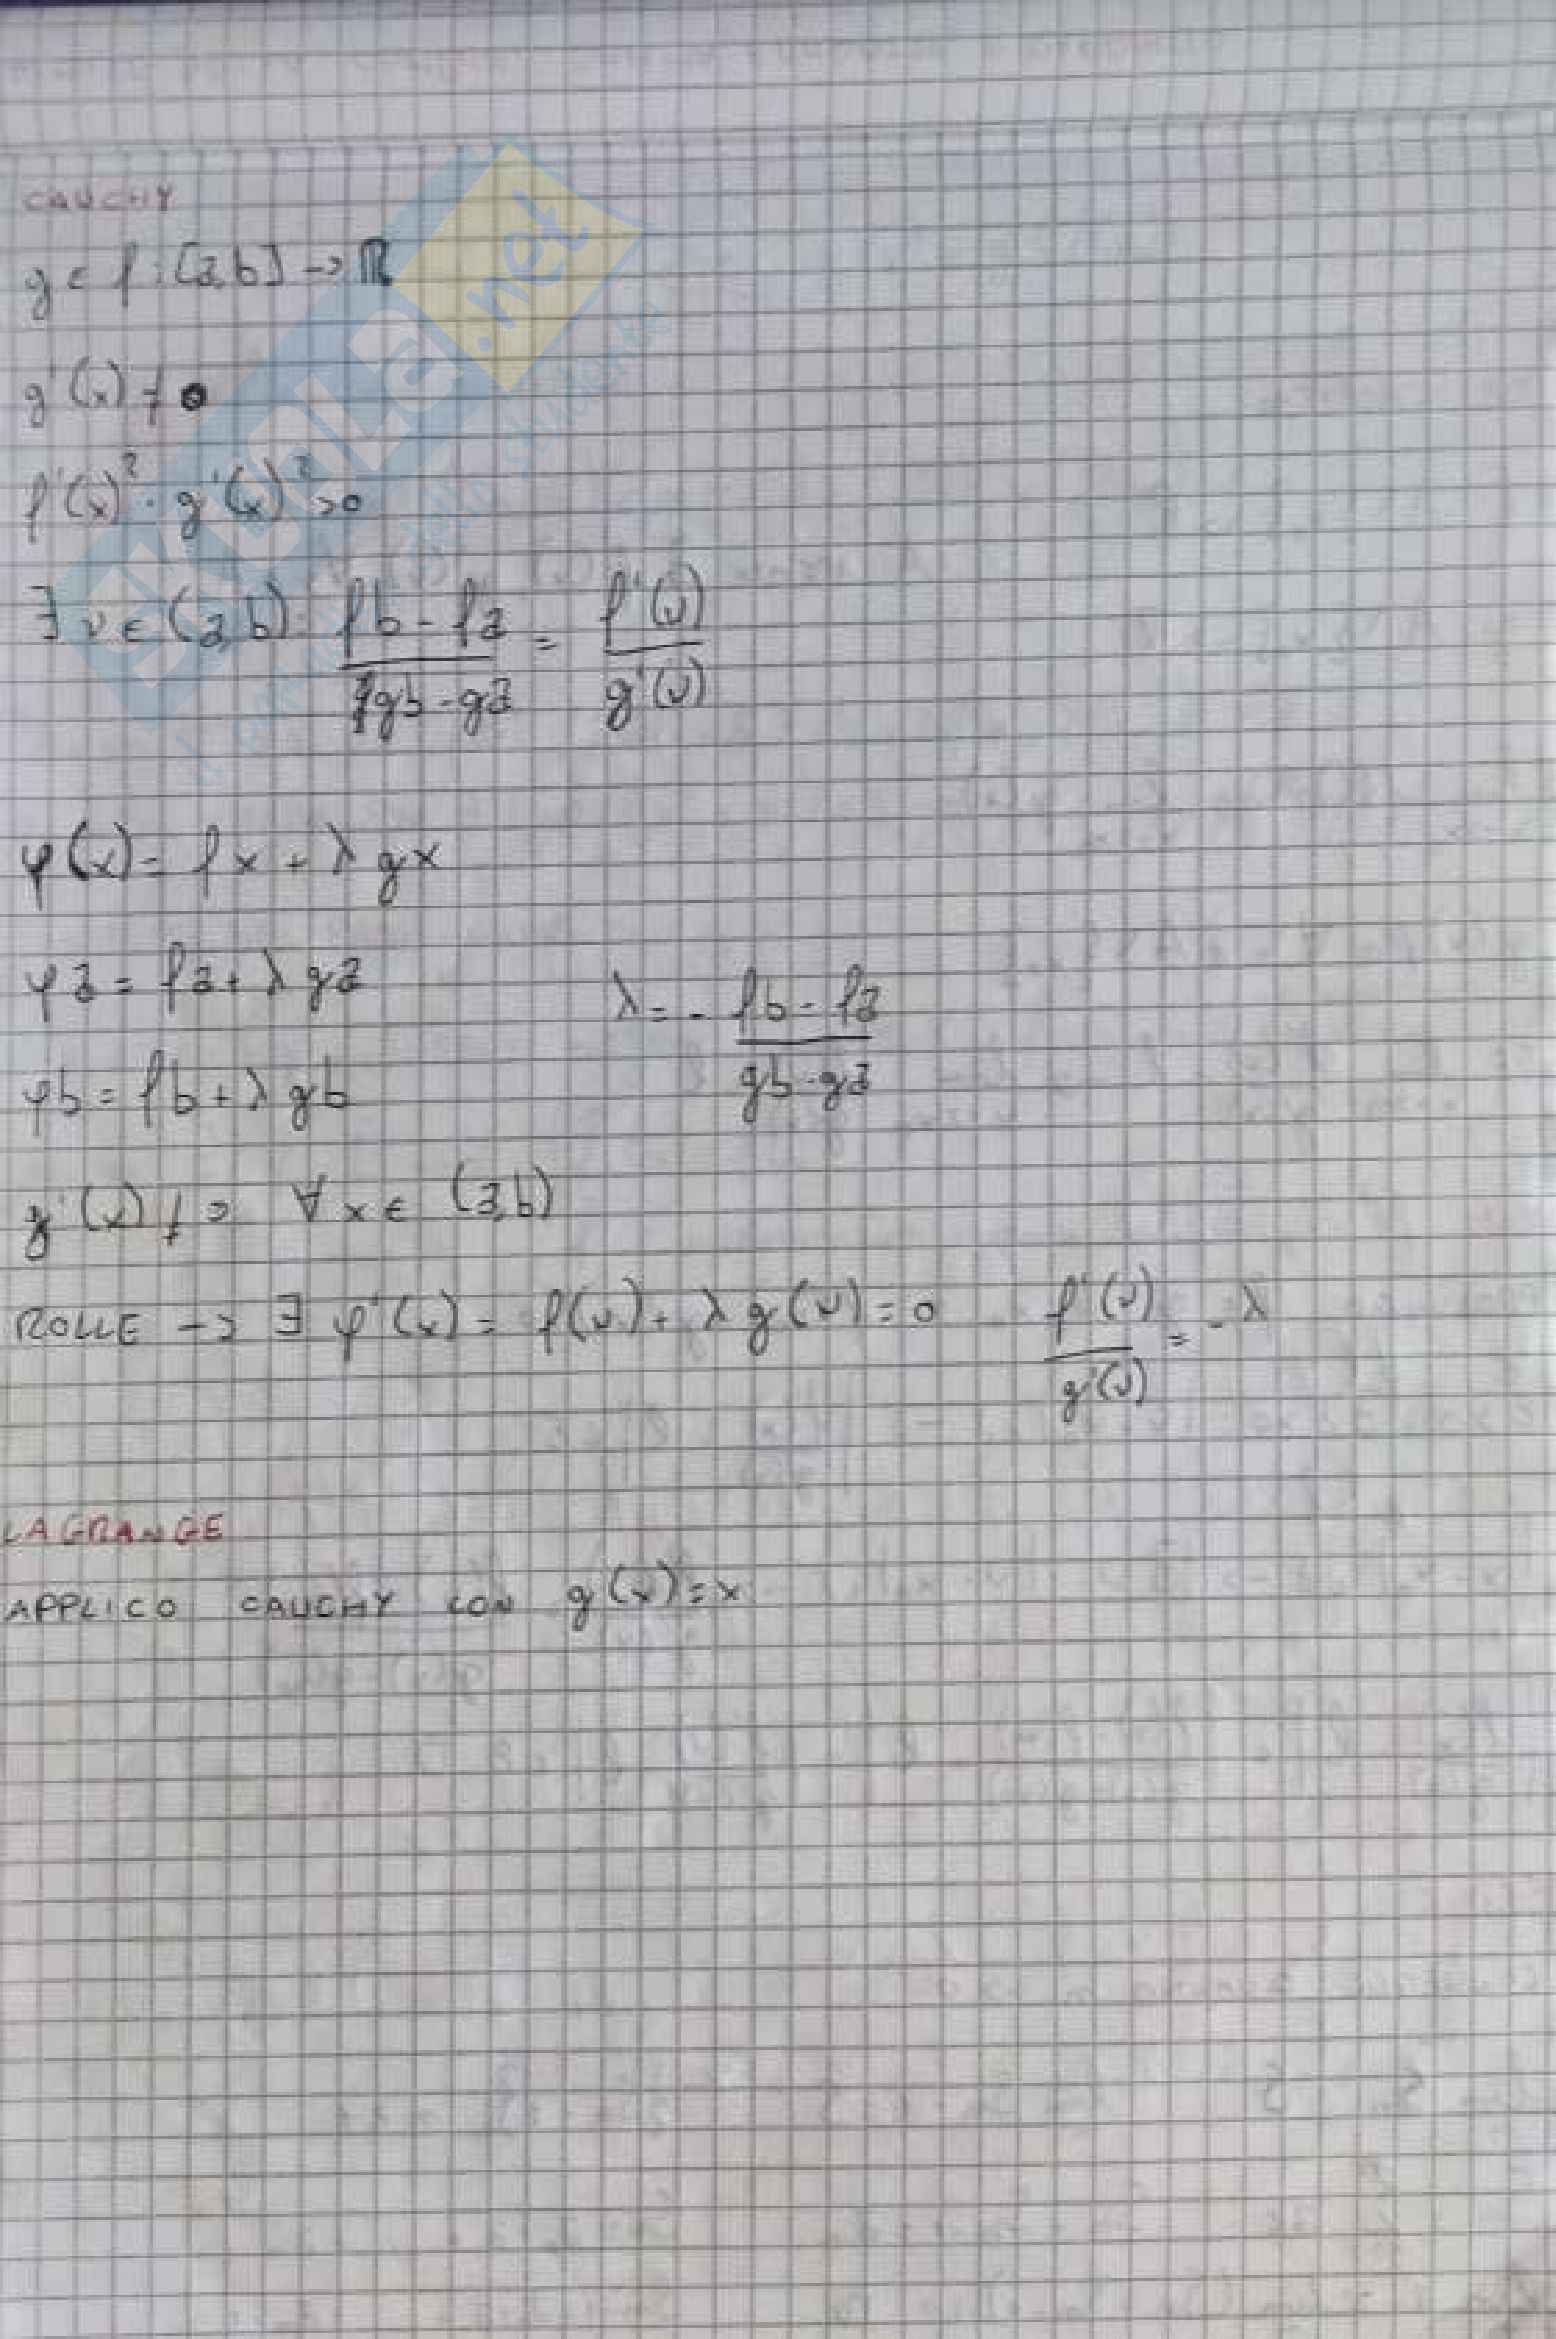 CAUCHY
g e f : [a,b] → ℝ
g'(x) ≠ 0
f'(x)² + g'(x)² > 0
∃ ν ∈ (a,b) : (fb - fa) / (gb - ga) = f'(ν) / g'(ν)
φ(x) = fx + λ gx
φa = fa + λ ga
λ = - (fb - fa) / (gb - ga)
φb = fb + λ gb
g'(x) ≠ 0 ∀ x ∈ (a,b)
ROLLE → ∃ φ'(ν) = f(ν) + λ g(ν) = 0 f'(ν) / g'(ν) = - λ
LAGRANGE
APPLICO CAUCHY CON g(x) = x
SKUOLA.net